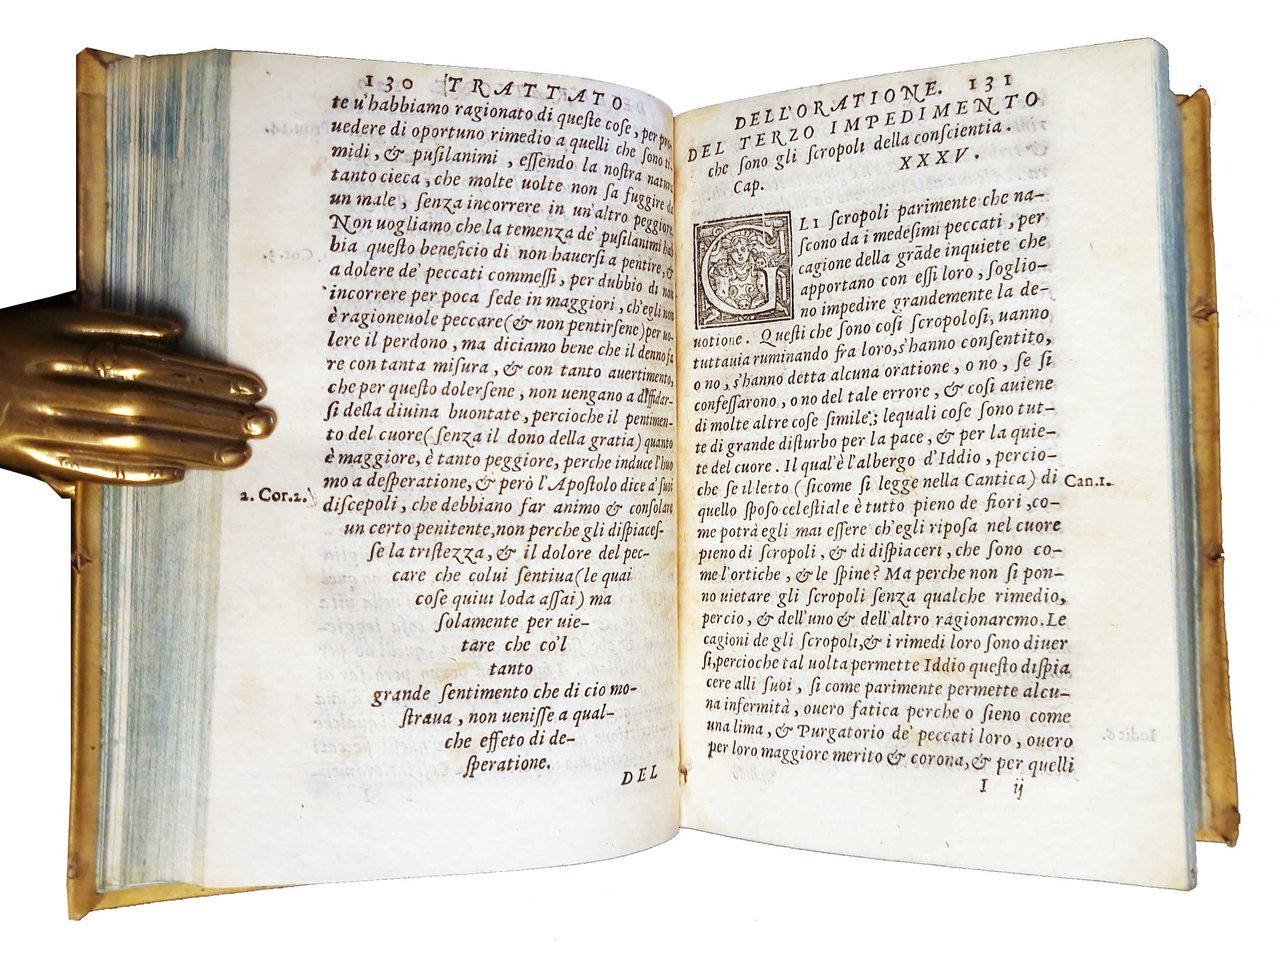 130 TRATTATO
te u'habbiamo ragionato di queste cose, per pro
uedere di oportuno rimedio a quelli che sono ti
midi, & pusilanimi, essendo la nostra natura
tanto cieca, che molte uolte non sa fuggire da
un male, senza incorrere in un'altro peggiore.
Non uogliamo che la temenza de' pusilanimi hab
bia questo beneficio di non hauersi a pentire, &
a dolere de' peccati commessi, per dubbio di non
incorrere per poca fede in maggiori, ch'egli non
è ragioneuole peccare (& non pentirsene) per uo
lere il perdono, ma diciamo bene che il denno fa
re con tanta misura, & con tanto auertimento,
che per questo dolersene, non uengano a diffidar-
si della diuina buontate, percioche il pentimen-
to del cuore (senza il dono della gratia) quanto
è maggiore, è tanto peggiore, perche induce l'huo
mo a desperatione, & però l'Apostolo dice a' suoi
2. Cor. 2.
discepoli, che debbiano far animo & consolare
un certo penitente, non perche gli dispiaces-
se la tristezza, & il dolore del pec-
care che colui sentiua (le quai
cose quiui loda assai) ma
solamente per uie-
tare che co'l
tanto
grande sentimento che di cio mo-
straua, non uenisse a qual-
che effeto di de-
speratione.
DEL
DELL'ORATIONE. 131
DEL TERZO IMPEDIMENTO
che sono gli scropoli della conscientia.
Cap. XXXV.
GLI scropoli parimente che na-
scono da i medesimi peccati, per
cagione della grāde inquiete che
apportano con essi loro, soglio-
no impedire grandemente la de-
uotione. Questi che sono così scropolosi, uanno
tuttauia ruminando fra loro, s'hanno consentito,
o no, s'hanno detta alcuna oratione, o no, se si
confessarono, o no del tale errore, & così auiene
di molte altre cose simile; lequali cose sono tut-
te di grande disturbo per la pace, & per la quie-
te del cuore. Il qual'è l'albergo d'Iddio, percio-
che se il letto (sicome si legge nella Cantica) di
Can. 1.
quello sposo celestiale è tutto pieno de fiori, co-
me potrà egli mai essere ch'egli riposa nel cuore
pieno di scropoli, & di dispiaceri, che sono co-
me l'ortiche, & le spine? Ma perche non si pon-
no uietare gli scropoli senza qualche rimedio,
percio, & dell'uno & dell'altro ragionaremo. Le
cagioni de gli scropoli, & i rimedi loro sono diuer
si, percioche tal uolta permette Iddio questo dispia
cere alli suoi, si come parimente permette alcu-
na infermità, ouero fatica perche o sieno come
una lima, & Purgatorio de' peccati loro, ouero
per loro maggiore merito & corona, & per quelli
I ij